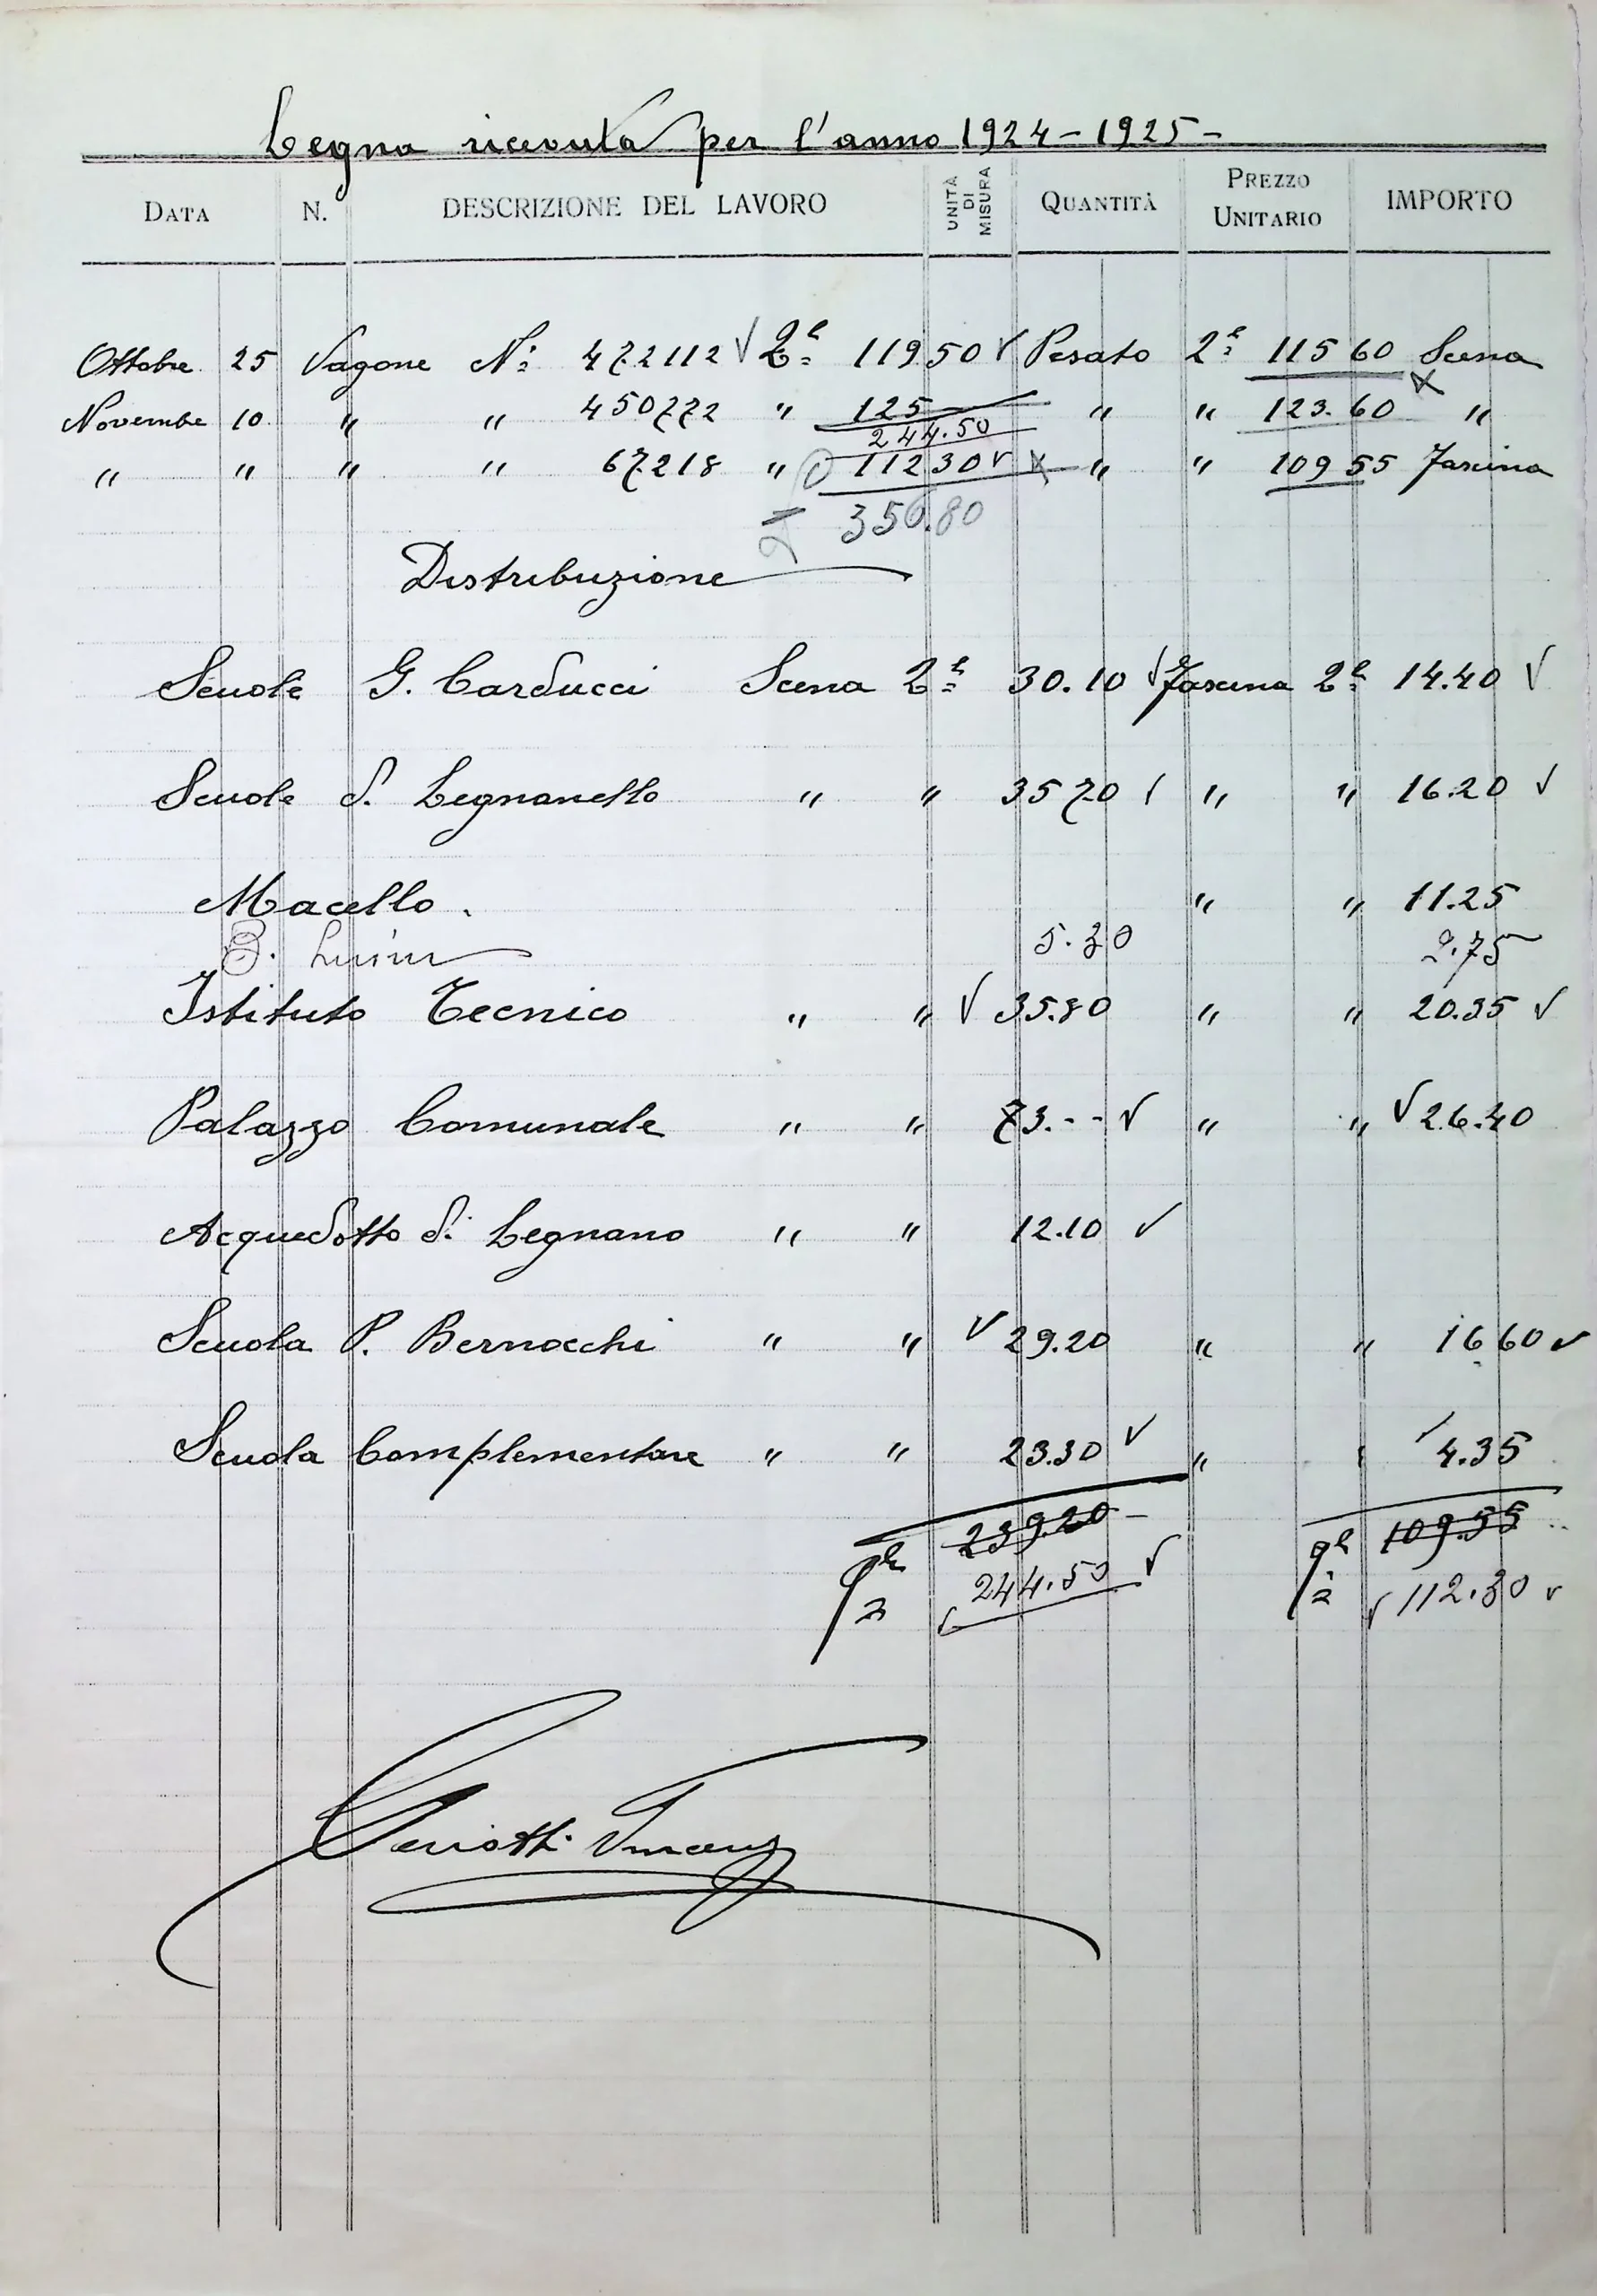 Legna ricevuta per l'anno 1924-1925-
DATA N. DESCRIZIONE DEL LAVORO UNITÀ DI MISURA QUANTITÀ PREZZO UNITARIO IMPORTO
Ottobre 25 Vagone N: 472112 √ Qli 119 50 √ Pesato Qli 115 60 Scena
Novembre 10 " " 450772 " 125 " " 123.60 "
244.50
" " " " 67218 " 112 30 √ " " 109 55 Fascina
356.80
Distribuzione
Scuole G. Carducci Scena Qli 30.10 √ Fascina Qli 14.40 √
Scuole d. Legnanello " " 35 70 " " 16.20 √
Macello. " " 11.25
5.30 2.75
Istituto Tecnico " " √ 35.80 " " 20.35 √
Palazzo Comunale " " 73.-- √ " " √ 26.40
Acquedotto di Legnano " " 12.10 √
Scuola P. Bernocchi " " √ 29.20 " " 16 60 √
Scuola Complementare " " 23.30 √ " " 4.35
239.20 - 109.55
qli 244.50 √ qli √ 112.30 √